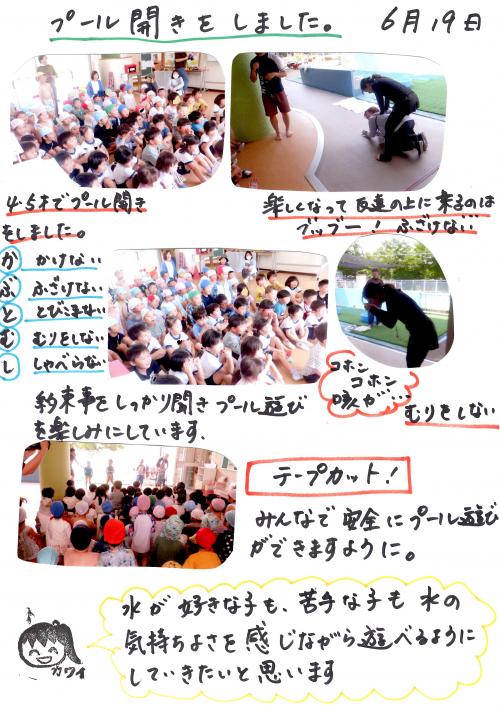 プール開きをしました。 6月19日
4・5才でプール開き
をしました。
か かけない
ふ ふざけない
と とびこまない
む むりをしない
し しゃべらない
楽しくなって友達の上に乗るのは
ブッブー! ふざけない
コホン
コホン
咳が…
むりをしない
約束事をしっかり聞きプール遊び
を楽しみにしています。
テープカット!
みんなで安全にプール遊び
ができますように。
水が好きな子も、苦手な子も水の
気持ちよさを感じながら遊べるように
していきたいと思います
カワイ